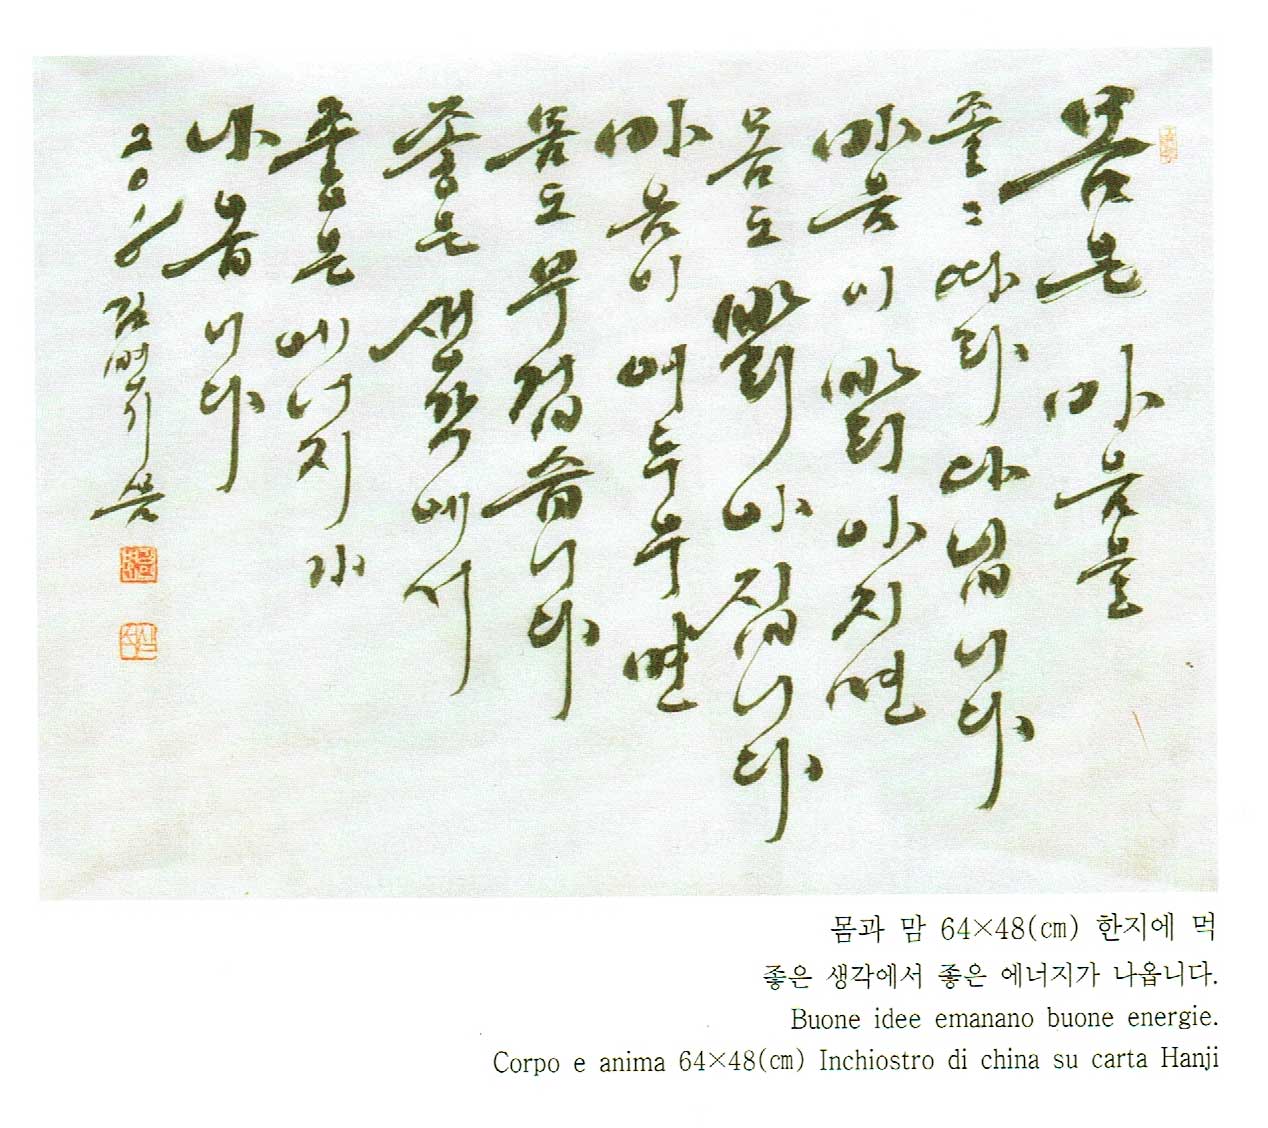 몸은 마음을
졸〃 따라다닙니다
마음이 밝아지면
몸도 밝아집니다
마음이 어두우면
몸도 무겁습니다
좋은 생각에서
좋은 에너지가
나옵니다
2016 김병기 씀
몸과 맘 64×48(cm) 한지에 먹
좋은 생각에서 좋은 에너지가 나옵니다.
Buone idee emanano buone energie.
Corpo e anima 64×48(cm) Inchiostro di china su carta Hanji